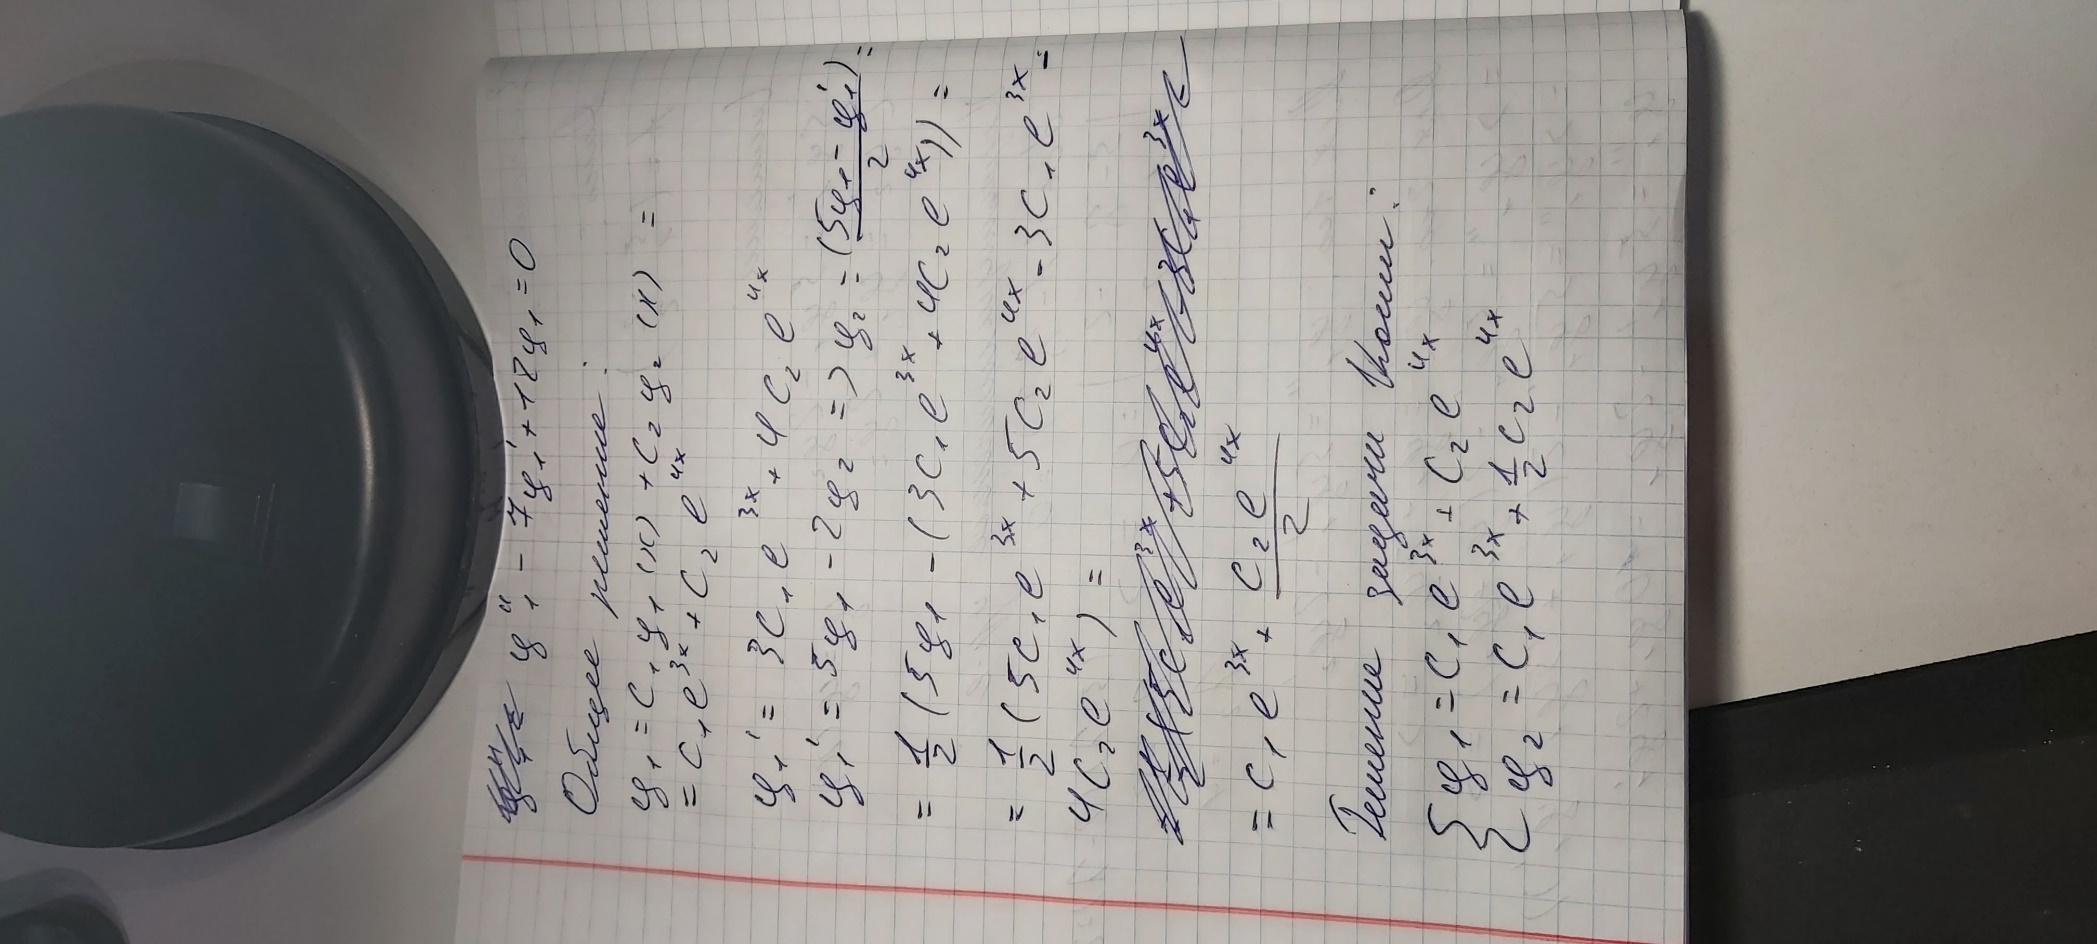 y₁'' - 7y₁' + 12y₁ = 0
Общее решение:
y₁ = C₁y₁(x) + C₂y₂(x) =
= C₁e^{3x} + C₂e^{4x}
y₁' = 3C₁e^{3x} + 4C₂e^{4x}
y₁' = 5y₁ - 2y₂ => y₂ = (5y₁ - y₁')/2 =
= 1/2 (5y₁ - (3C₁e^{3x} + 4C₂e^{4x})) =
= 1/2 (5C₁e^{3x} + 5C₂e^{4x} - 3C₁e^{3x} -
4C₂e^{4x}) =
= C₁e^{3x} + C₂e^{4x}/2
Решение задачи Коши:
{ y₁ = C₁e^{3x} + C₂e^{4x}
{ y₂ = C₁e^{3x} + 1/2 C₂e^{4x}